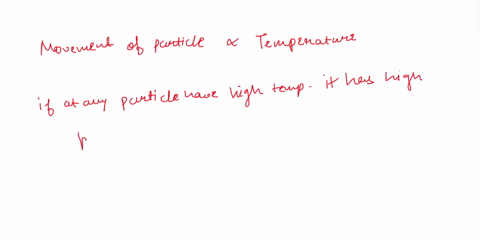 Movement of particle ∝ Temperature
if at any particle have high temp. it has high